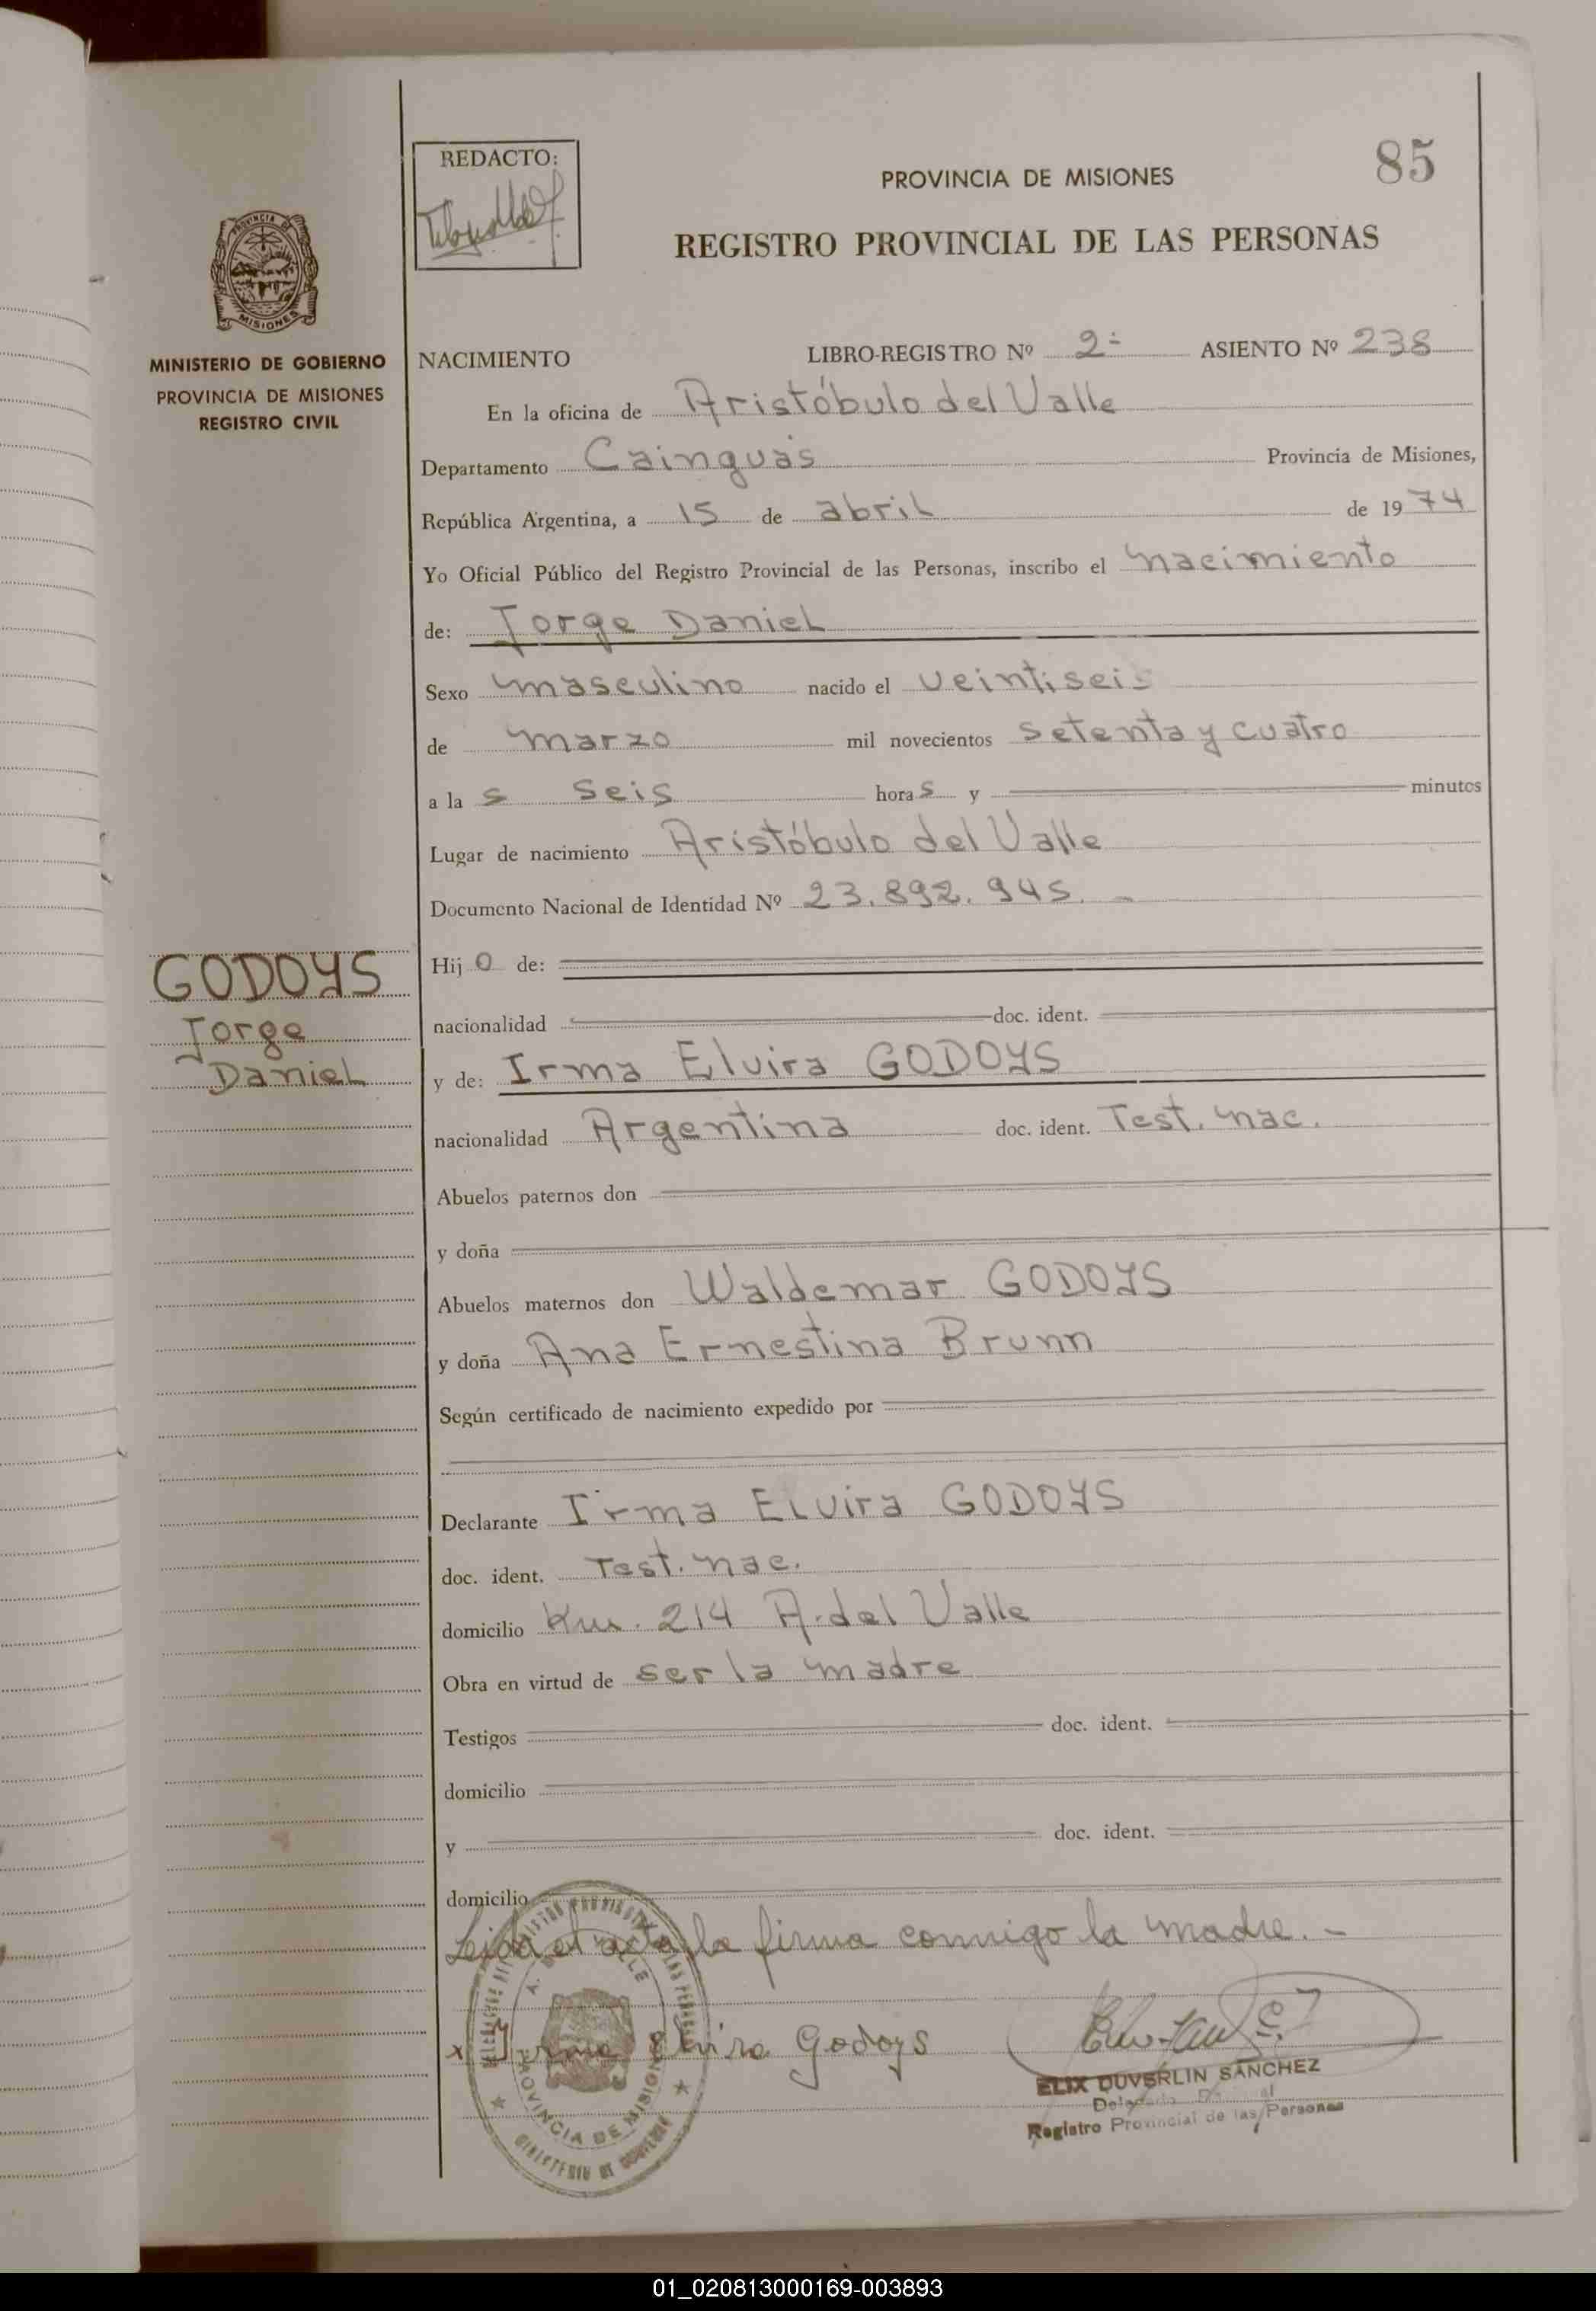 85
REDACTO:
PROVINCIA DE MISIONES
REGISTRO PROVINCIAL DE LAS PERSONAS
PROVINCIA DE
MISIONES
MINISTERIO DE GOBIERNO
PROVINCIA DE MISIONES
REGISTRO CIVIL
NACIMIENTO LIBRO-REGISTRO Nº 2- ASIENTO Nº 238
En la oficina de Aristóbulo del Valle
Departamento Cainguás Provincia de Misiones,
República Argentina, a 15 de abril de 1974
Yo Oficial Público del Registro Provincial de las Personas, inscribo el nacimiento
de: Jorge Daniel
Sexo masculino nacido el veintiseis
de marzo mil novecientos setenta y cuatro
a las seis horas y minutos
Lugar de nacimiento Aristóbulo del Valle
Documento Nacional de Identidad Nº 23.892.945.-
GODOYS
Jorge
Daniel
Hijo de:
nacionalidad doc. ident.
y de: Irma Elvira GODOYS
nacionalidad Argentina doc. ident. Test. nac.
Abuelos paternos don
y doña
Abuelos maternos don Waldemar GODOYS
y doña Ana Ernestina Brunn
Según certificado de nacimiento expedido por
Declarante Irma Elvira GODOYS
doc. ident. Test. nac.
domicilio Km. 214 A. del Valle
Obra en virtud de ser la madre
Testigos doc. ident.
domicilio
y doc. ident.
domicilio
Leida el acta, la firma conmigo la madre.-
x Irma Elvira Godoys
PROVINCIA DE MISIONES
MINISTERIO DE GOBIERNO
ELIX DUVERLIN SANCHEZ
Registro Provincial de las Personas
01_020813000169-003893